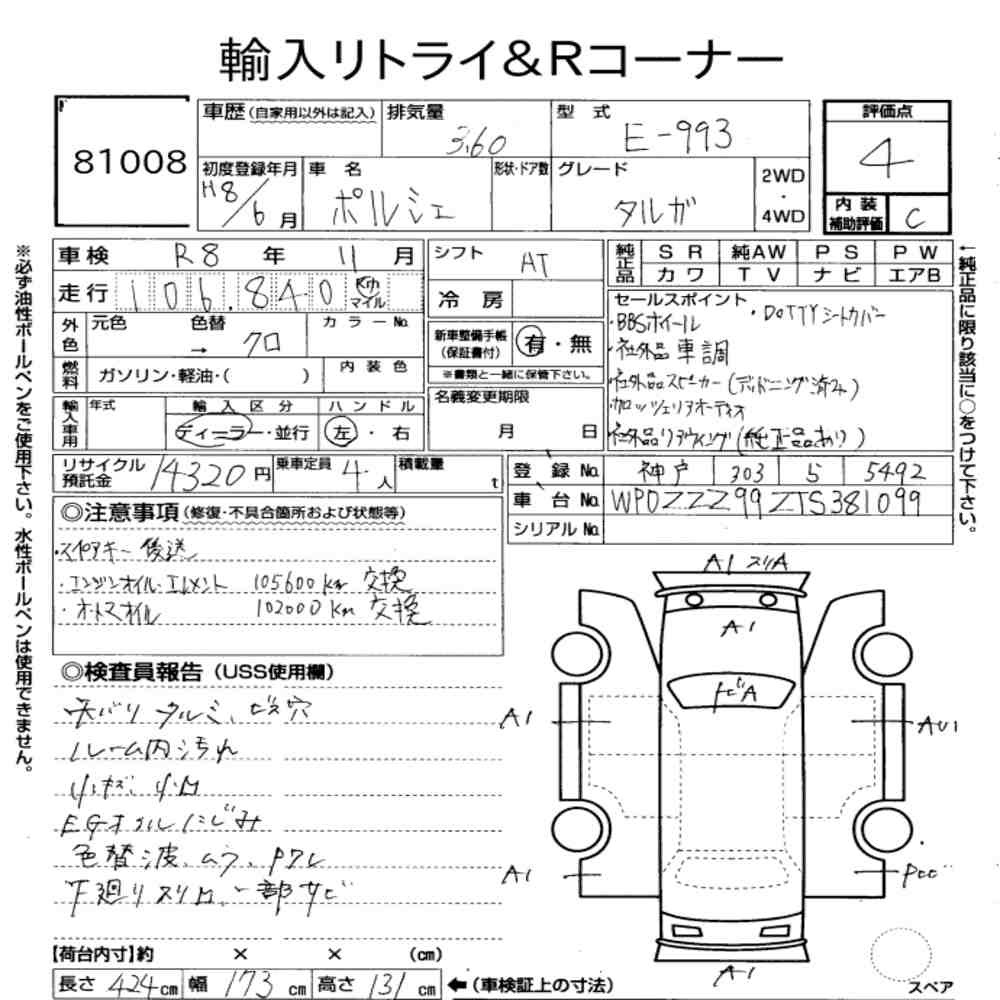 輸入リトライ&Rコーナー
81008
車歴(自家用以外は記入) 排気量 3.60 型式 E-993
初度登録年月 H8/6月 車名 ポルシェ 形状・ドア数 グレード タルガ 2WD・4WD
評価点 4
内装補助評価 C
車検 R8年 11月
走行 106.840 Km マイル
外色 元色 色替 → クロ カラーNo.
燃料 ガソリン・軽油・( ) 内装色
輸入車用 年式 輸入区分 ディーラー・並行 ハンドル 左・右
シフト AT
冷房
新車整備手帳(保証書付) 有・無
※書類と一緒に保管下さい。
名義変更期限 月 日
純正品 SR 純AW PS PW
カワ TV ナビ エアB
セールスポイント
・BBSホイール ・DOTTYシートカバー
・社外品車調
・社外品スピーカー(デッドニング済み)
・カロッツェリアオーディオ
・社外品リアウィング(純正品あり)
リサイクル預託金 14320円 乗車定員 4人 積載量 t
登録No. 神戸 303 ら 5492
車台No. WP0ZZZ99ZTS381099
シリアルNo.
◎注意事項(修復・不具合箇所および状態等)
・スペアキー後送
・エンジンオイル・エレメント 105600km 交換
・オートマオイル 102000km 交換
◎検査員報告(USS使用欄)
天バリタルミ、ビス穴
ルーム内汚れ
小キズ、小凹
EGオイルにじみ
色替波、ムラ、Pワレ
下廻りスリ凹、一部サビ
A1 スリA
A1
トビA
A1
AU1
A1
Pcc
A1
スペア
【荷台内寸】約 × × (cm)
長さ 424cm 幅 173cm 高さ 131cm ←(車検証上の寸法)
※必ず油性ボールペンをご使用下さい。水性ボールペンは使用できません。
←純正品に限り該当に○をつけて下さい。